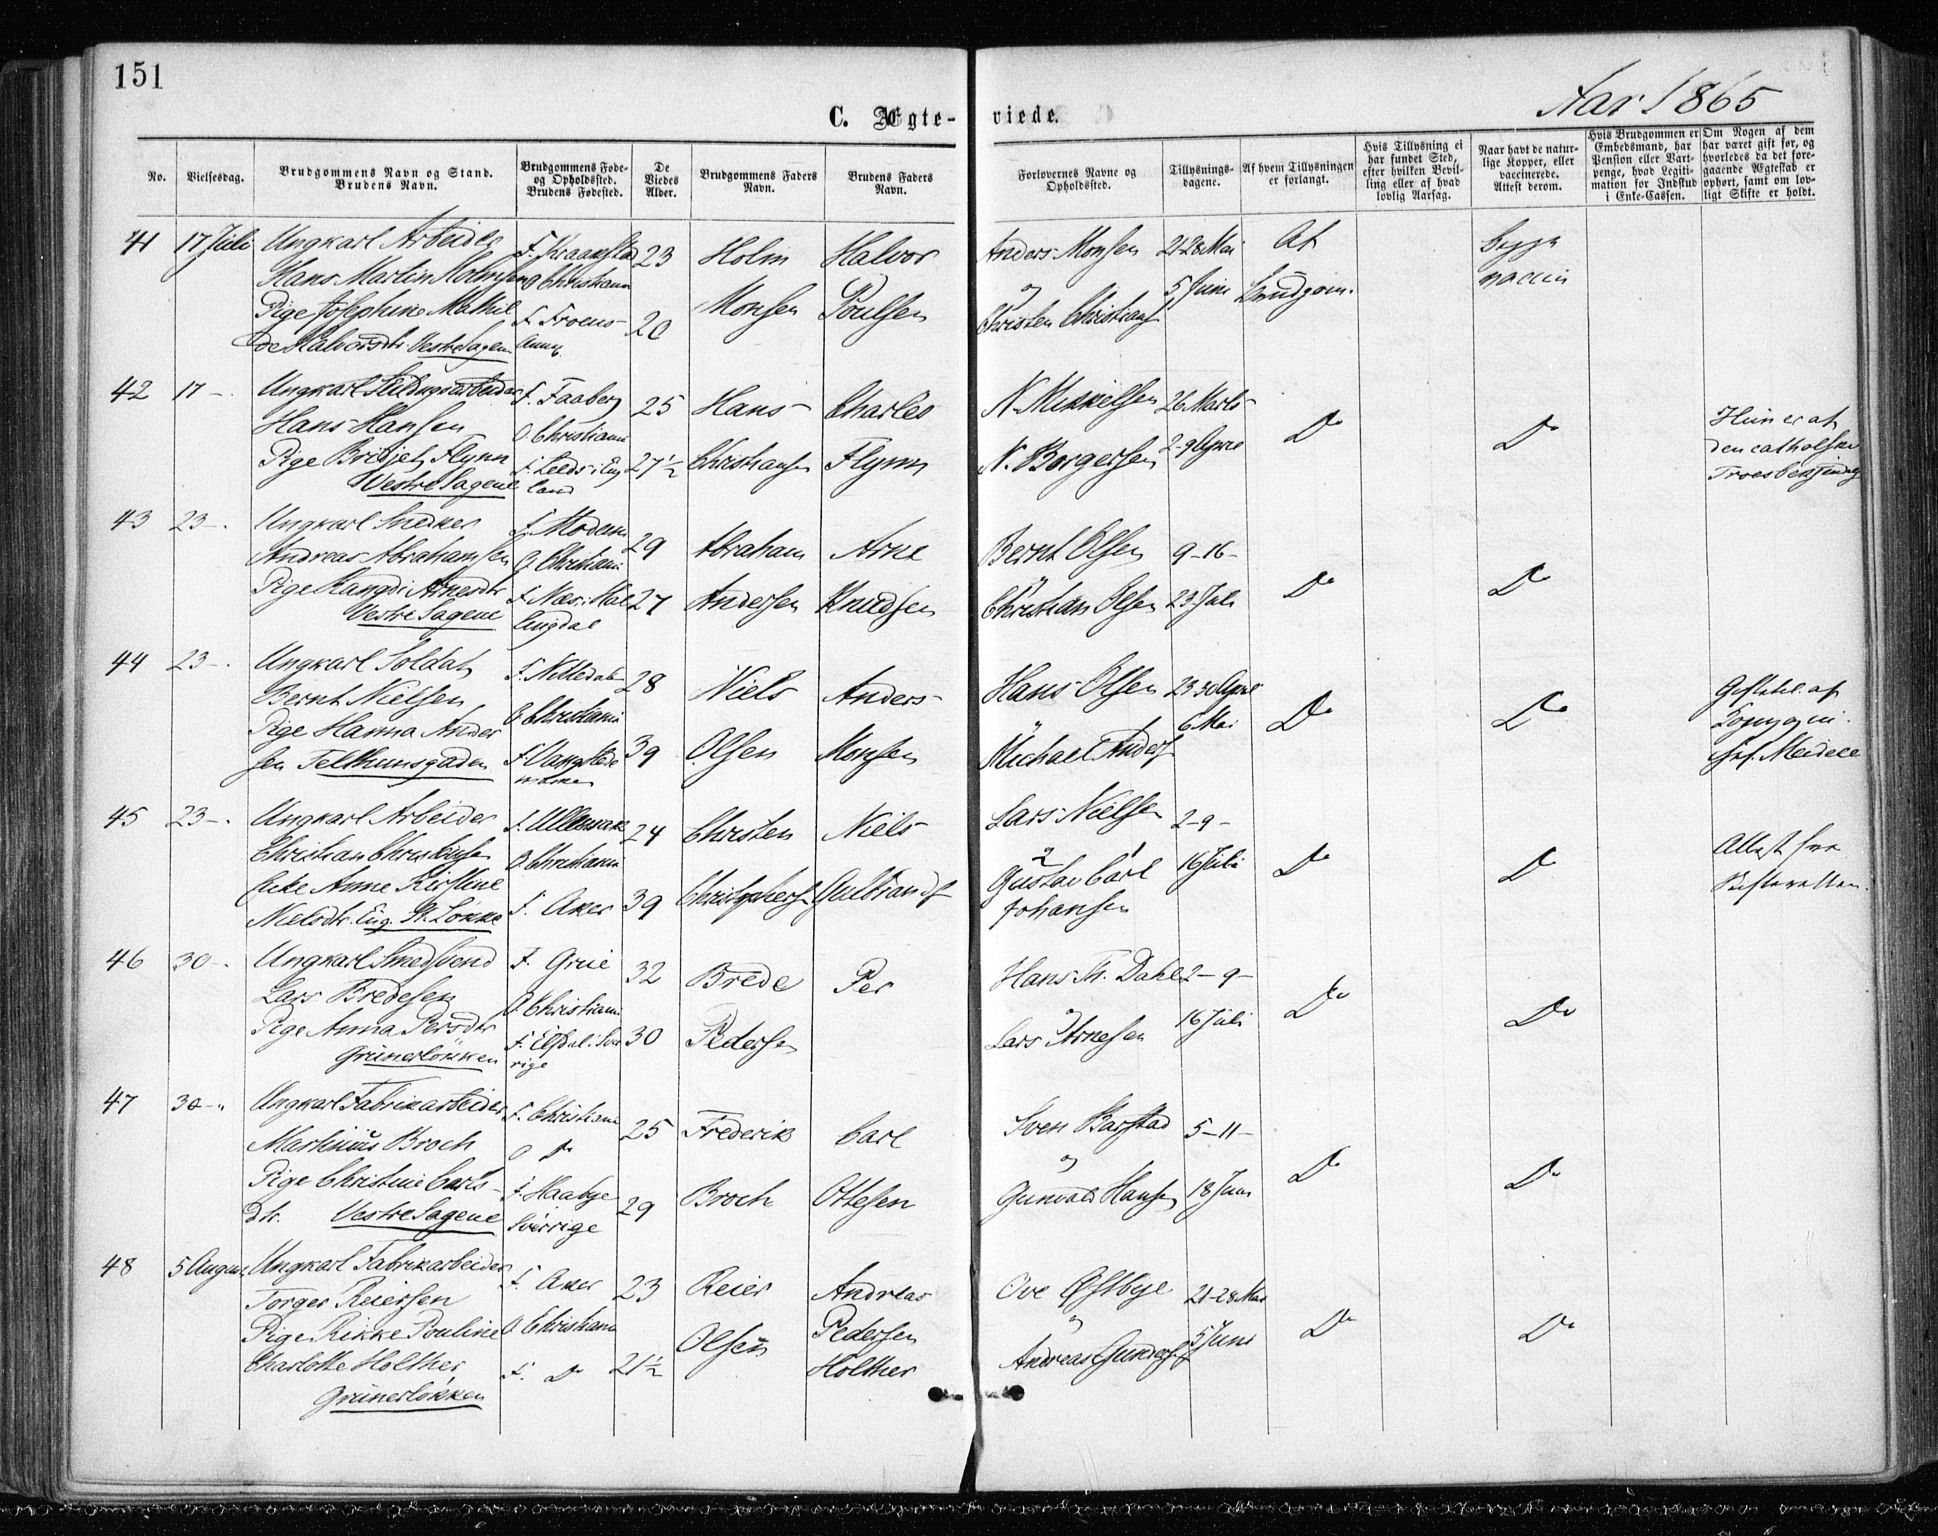 151
C. Ægte- viede.
Aar 1865
No.
Vielsesdag.
Brudgommens Navn og Stand.
Brudens Navn.
Brudgommens Føde-
og Opholdssted.
Brudens Fødested.
De
Viedes
Alder.
Brudgommens Faders
Navn.
Brudens Faders
Navn.
Forlovernes Navne og
Opholdssted.
Tillysnings-
dagene.
Af hvem Tillysningen
er forlangt.
Hvis Tillysning ei
har fundet Sted,
efter hvilken Bevil-
ling eller af hvad
lovlig Aarsag.
Naar havt de natur-
lige Kopper, eller
vaccinerede.
Attest derom.
Hvis Brudgommen er
Embedsmand, har
Pension eller Vart-
penge, hvad Legiti-
mation for Indskud
i Enke-Cassen.
Om Nogen af dem
har været gift før, og
hvorledes da det fore-
gaaende Ægteskab er
ophørt, samt om lov-
ligt Skifte er holdt.
41 17 Juli Ungkarl Arbeider F. Kraakstad 23 Holm Halvor Anders Monsen 21-28 Mai Af begge
Hans Martin Holmsen O Christiania Monsen Poulsen og 5 Juni Brudgom. vaccin
Pige Josephine Mathil F. 20 Christen Christians
de Halvorsdtr. Vestre Sagene
42 17 - Ungkarl F. Faaberg 25 Hans Charles N. Mikkelsen 26 Marts Do Do Hun er af
Hans Hansen O. Christiania 2-9 April den catholske
Pige Bridjet Flynn F. Leeds i Eng 27½ Christiansen Flynn N. Borgersen Troesbekjendelse
Vestre Sagene land
43 23 -. Ungkarl Snedker F. Modum 29 Abraham Arne Bernt Olsen 9-16- Do Do
Andreas Abrahamsen O Christiania
Pige Arnesdtr F. Næs i Hal 27 Andersen Knudsen Christian Olsen 23 Juli
Vestre Sagene lingdal
44 23 -. Ungkarl Soldat F. Nittedal 28 Niels Anders Hans Olsen 23 30 April Do Do
Bernt Nielsen O. Christiania 6 Mai
Pige Hanna Ander F. 39 Olsen Monsen Michael Anders
sen Telthuusgaden
45 23 -. Ungkarl Arbeider F. Ullensak 24 Christen Niels Lars Nielsen 2-9- Do Do Attest fra
Christian Christensen O Christiania og 16 Juli Skifteretten.
Enke Anne Kirstine F. Aker 39 Christophers Gulbrands Gustav Carl
Nielsdtr. Eng St. Løkke Johansen
46 30 -. Ungkarl Smedsvend F. Grue 32 Brede Per Hans Dahl 2-9- Do Do
Lars Bredesen O. Christiania og
Pige Anna Persdtr F. Elfdal i Sve 30 Pedersen Lars Arnesen 16 Juli
Grünerløkken rige
47 30 -. Ungkarl Fabrikarbeider F. Christiania 25 Frederik Carl Sven 5-11- Do Do
Martinius Broch O Do og
Pige Christine Carls- F. 29 Broch Ottesen Gunvald Hansen 18 Juni
dtr. Vestre Sagene Sverrige
48 5 August Ungkarl Fabrikarbeider F. Aker 23 Reier Andreas Ove Østbye 21-28 Mai Do Do
Torger Reiersen O Christiania Olsen Pedersen og 5 Juni
Pige Rikke Pouline F. Do 21½ Holther Andreas Gunders
Charlotte Holther
Grünerløkken